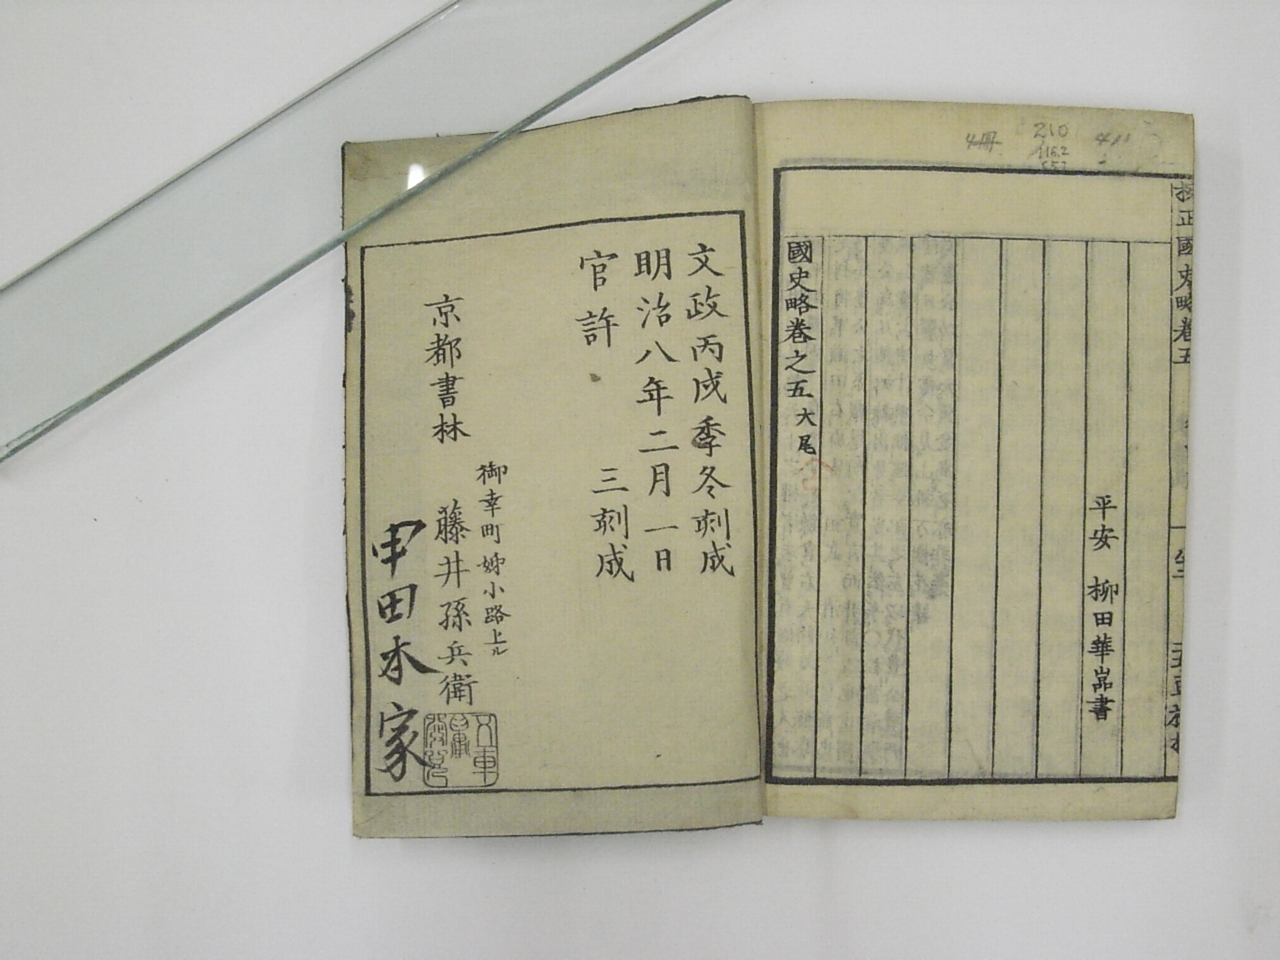 210
116.2
平安 柳田華嵓書
國史略卷之五大尾
文政丙戌季冬刻成
明治八年二月一日
官許 三刻成
京都書林
御幸町姉小路上ル
藤井孫兵衛
申田本家